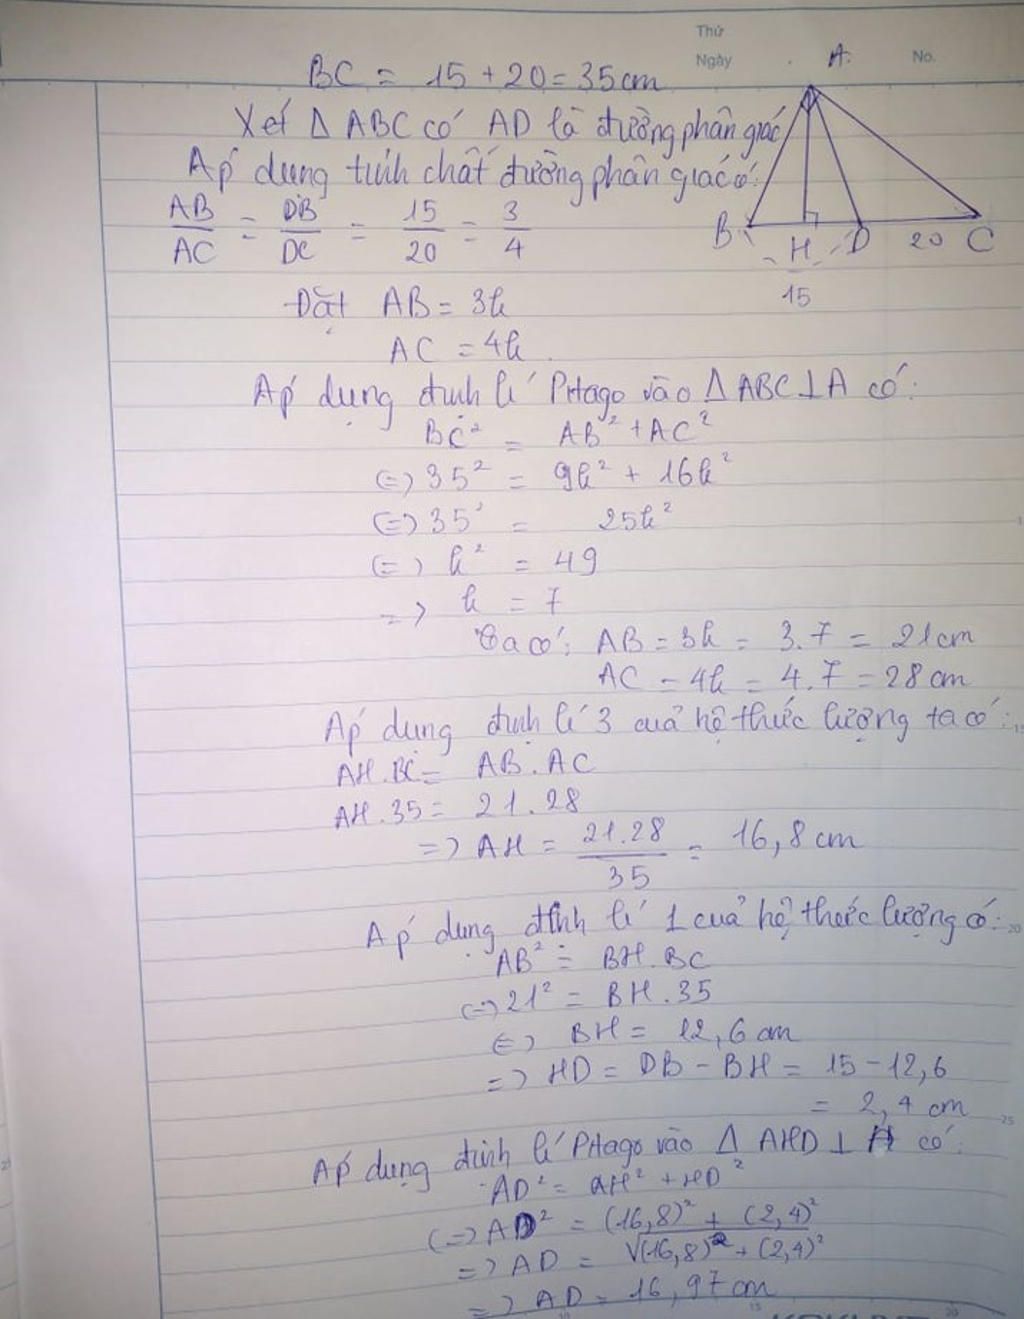 Thứ
Ngày
No.
A
BC = 15 + 20 = 35 cm
Xét Δ ABC có AD là đường phân giác
Áp dụng tính chất đường phân giác có:
AB/AC = DB/DC = 15/20 = 3/4
B H D 20 C
15
Đặt AB = 3k
AC = 4k
Áp dụng định lí Pitago vào Δ ABC ⊥ A có:
BC² = AB² + AC²
(=) 35² = 9k² + 16k²
(=) 35² = 25k²
(=) k² = 49
=> k = 7
Ta có: AB = 3k = 3.7 = 21 cm
AC = 4k = 4.7 = 28 cm
Áp dụng định lí 3 của hệ thức lượng ta có:
AH.BC = AB.AC
AH.35 = 21.28
=> AH = 21.28/35 = 16,8 cm
Áp dụng định lí 1 của hệ thức lượng có:
AB² = BH.BC
(=) 21² = BH.35
(=) BH = 12,6 cm
=> HD = DB - BH = 15 - 12,6
= 2,4 cm
Áp dụng định lí Pitago vào Δ AHD ⊥ H có:
AD² = AH² + HD²
(=) AD² = (16,8)² + (2,4)²
=> AD = √(16,8)² + (2,4)²
=> AD = 16,97 cm